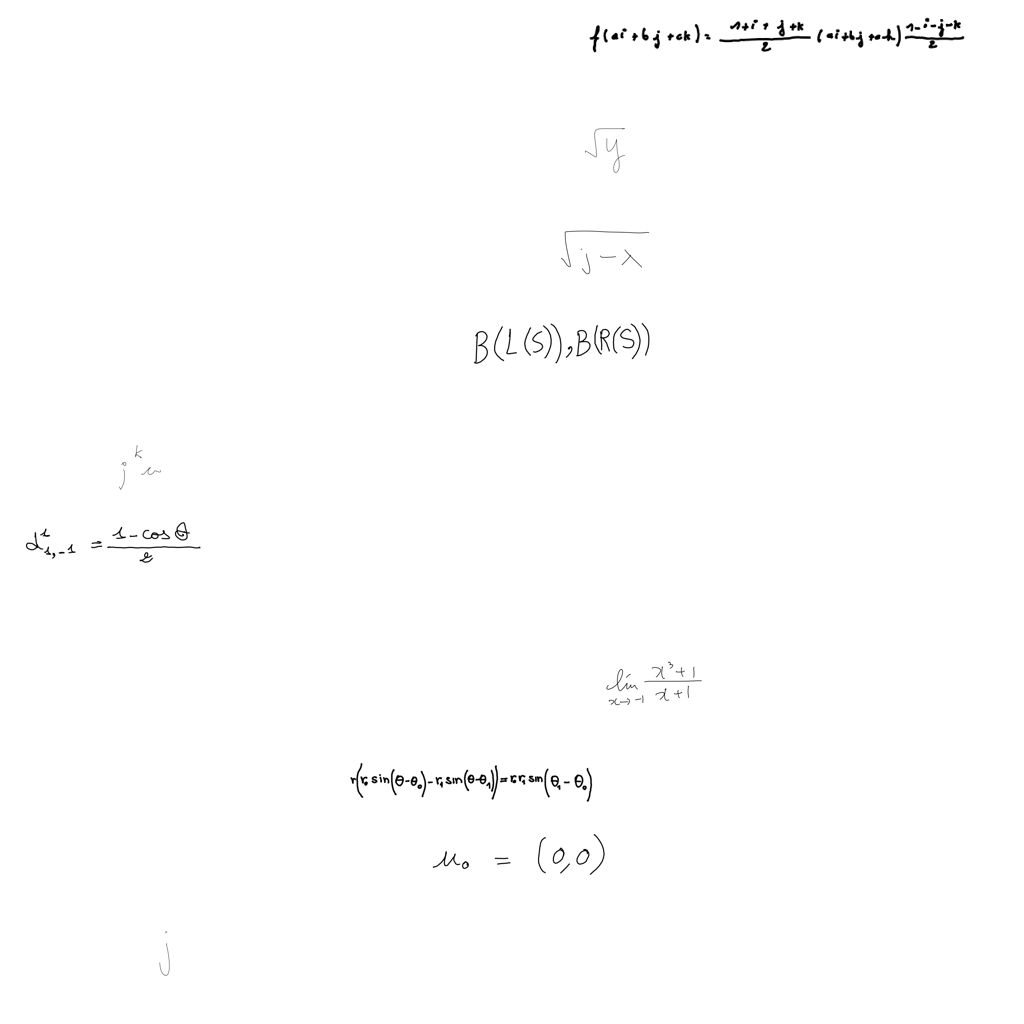 f(ai+bj+ck) = \frac{1+i+j+k}{2} (ai+bj+ck) \frac{1-i-j-k}{2}
\sqrt{y}
\sqrt{j-\lambda}
B(L(S)), B(R(S))
j^k u
d^1_{1,-1} = \frac{1-\cos\theta}{2}
\lim_{x \to -1} \frac{x^3+1}{x+1}
r(r_0 \sin(\theta-\theta_0) - r_1 \sin(\theta-\theta_1)) = r_0 r_1 \sin(\theta_1-\theta_0)
u_0 = (0,0)
j